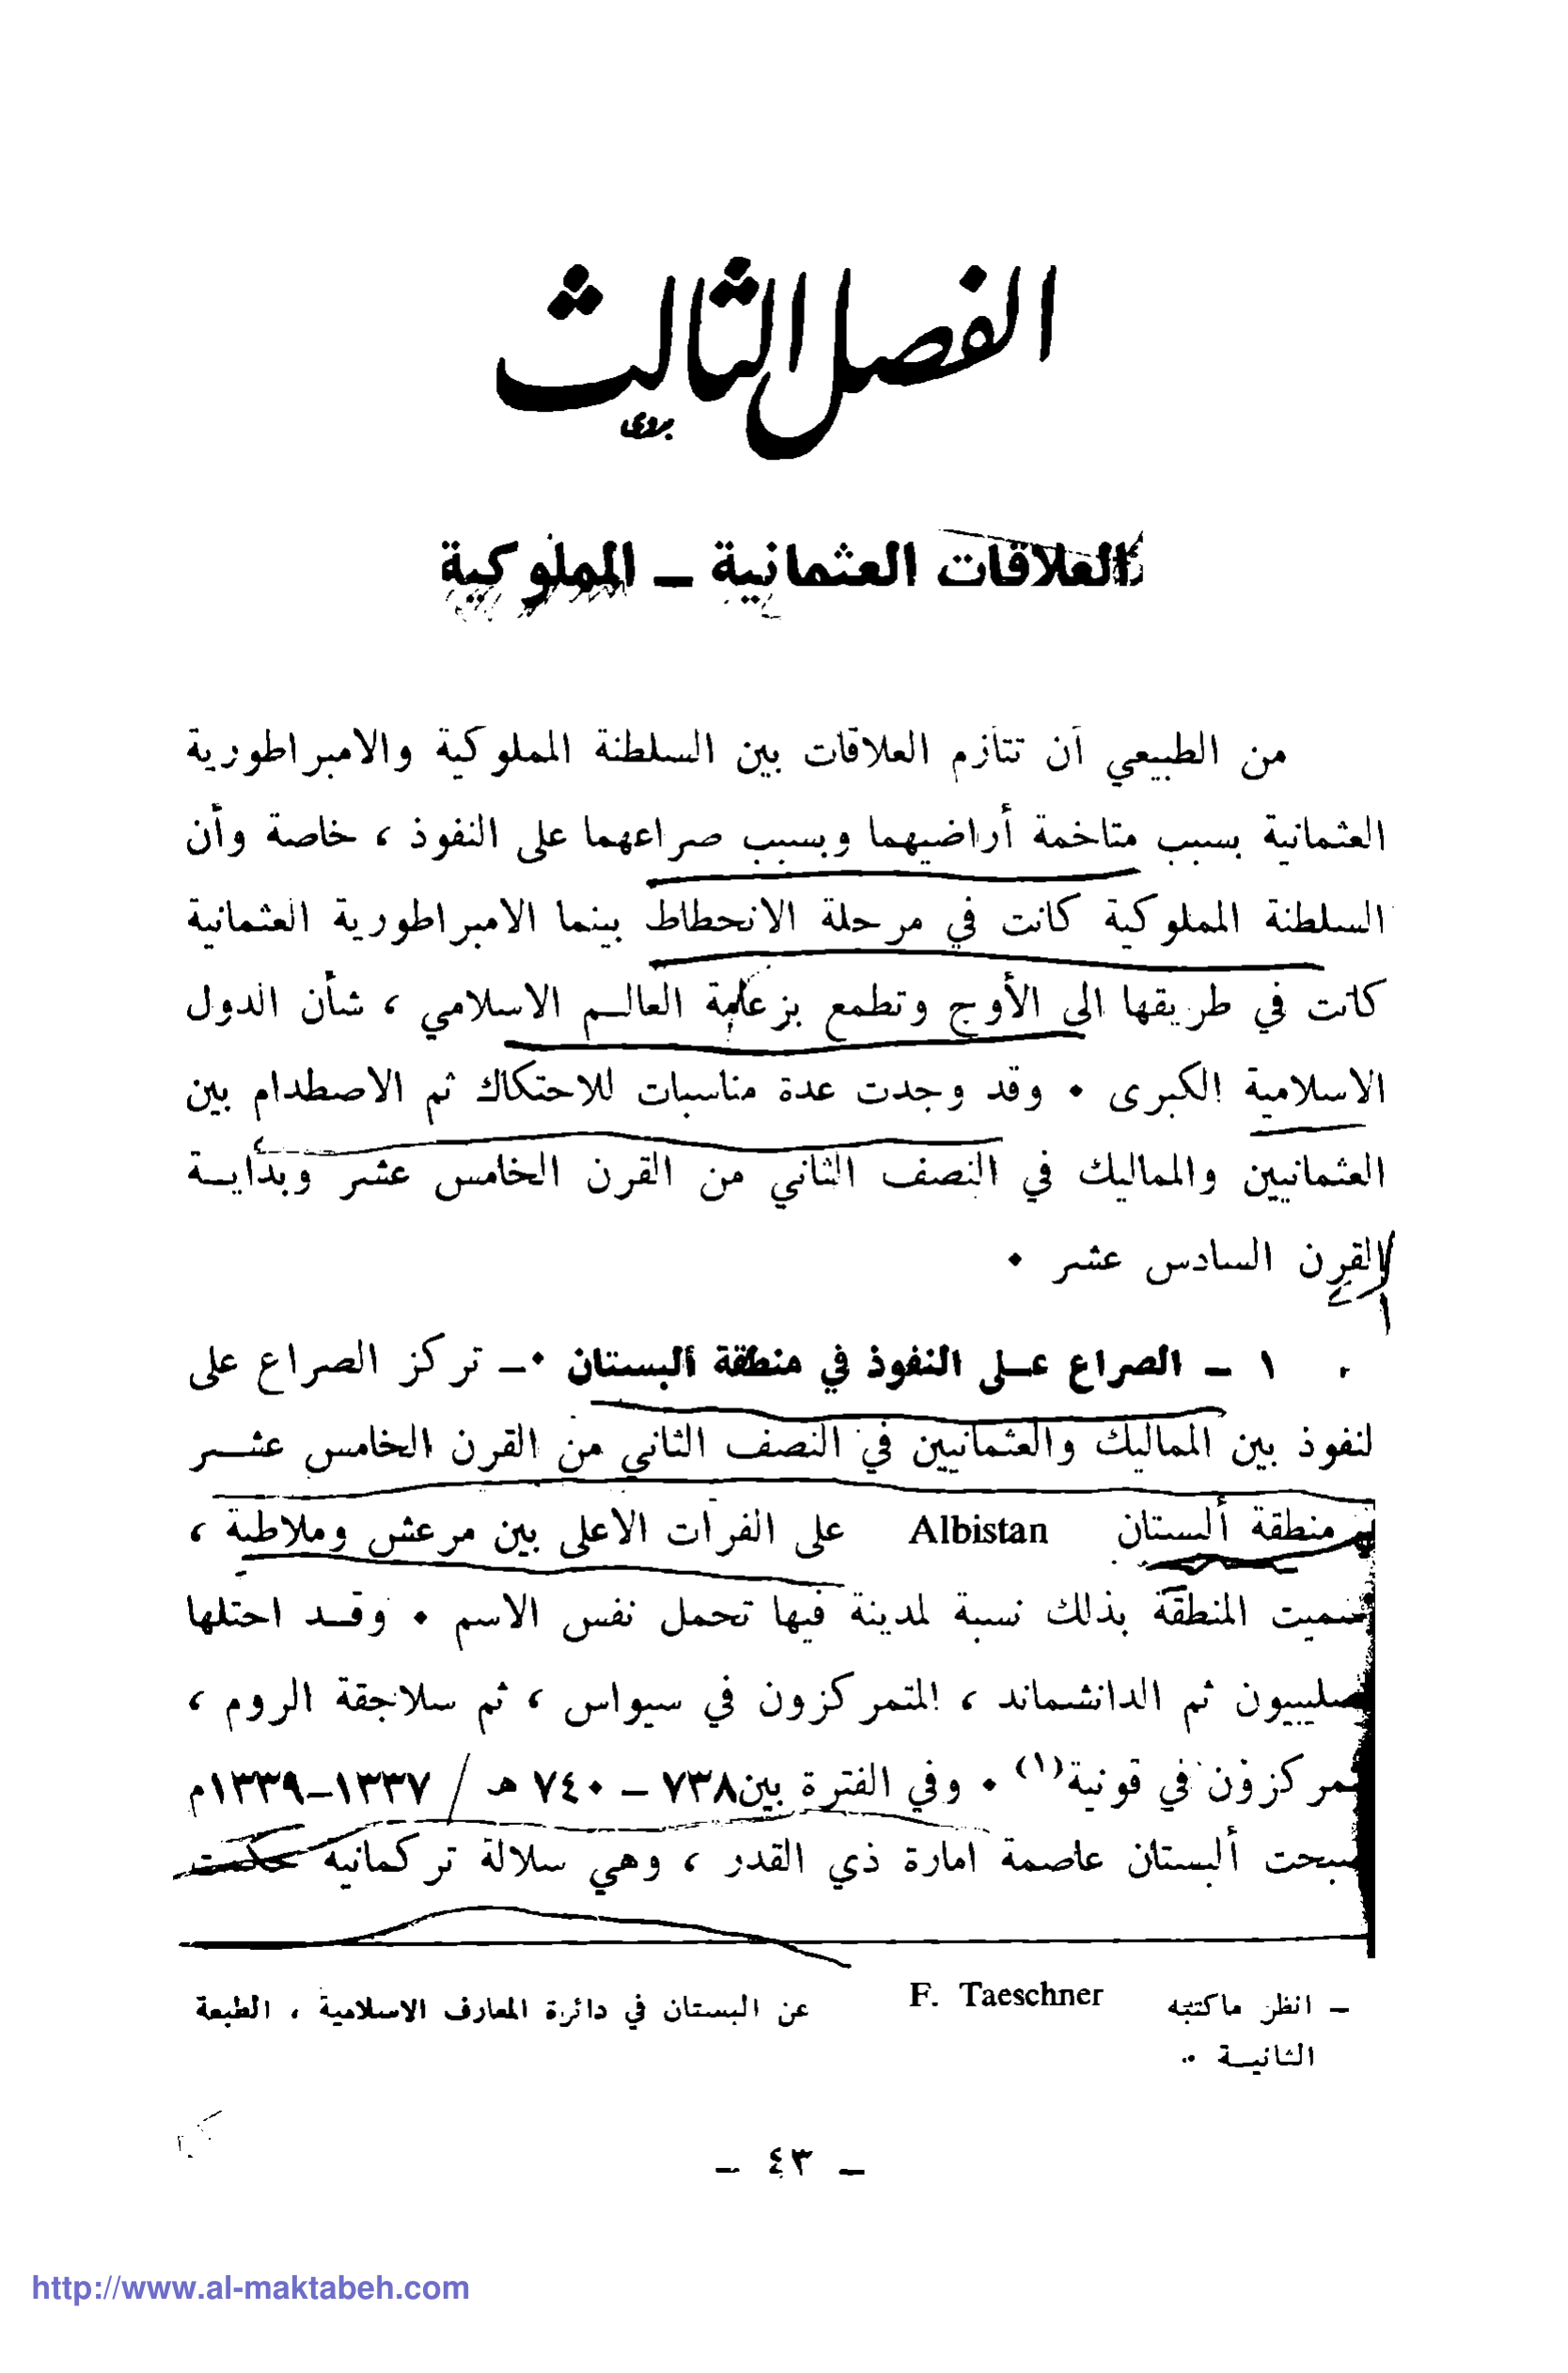 الفصل الثالث
العلاقات العثمانية – المملوكية
من الطبيعي أن تتأزم العلاقات بين السلطنة المملوكية والامبراطورية
العثمانية بسبب متاخمة أراضيهما وبسبب صراعهما على النفوذ ، خاصة وأن
السلطنة المملوكية كانت في مرحلة الانحطاط بينما الامبراطورية العثمانية
كانت في طريقها الى الأوج وتطمع بزعامة العالم الاسلامي ، شأن الدول
الاسلامية الكبرى . وقد وجدت عدة مناسبات للاحتكاك ثم الاصطدام بين
العثمانيين والمماليك في النصف الثاني من القرن الخامس عشر وبداية
القرن السادس عشر .
١ – الصراع على النفوذ في منطقة ألبستان .– تركز الصراع على
لنفوذ بين المماليك والعثمانيين في النصف الثاني من القرن الخامس عشر
منطقة ألبستان Albistan على الفرات الاعلى بين مرعش وملاطية ،
سميت المنطقة بذلك نسبة لمدينة فيها تحمل نفس الاسم . وقد احتلها
صليبيون ثم الدانشماند ، المتمركزون في سيواس ، ثم سلاجقة الروم ،
تمركزون في قونية(١) . وفي الفترة بين ٧٣٨ – ٧٤٠ هـ / ١٣٣٧–١٣٣٩م
سبحت ألبستان عاصمة امارة ذي القدر ، وهي سلالة تركمانية حكمت
– انظر ماكتبه F. Taeschner عن البستان في دائرة المعارف الاسلامية ، الطبعة
الثانية ..
– ٤٣ –
http://www.al-maktabeh.com